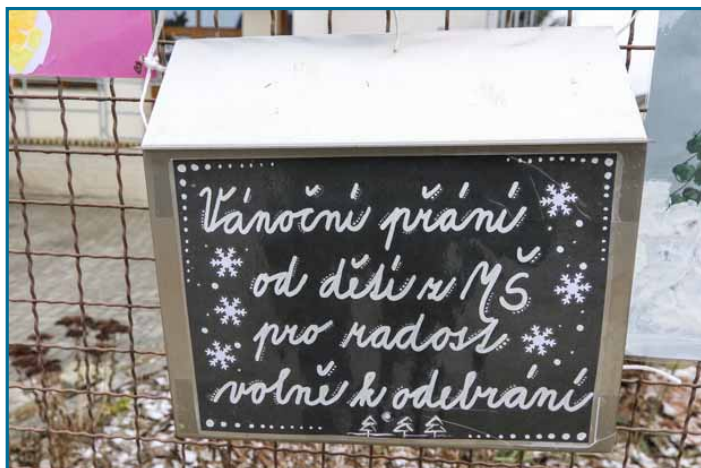 Vánoční přání
od dětí z MŠ
pro radost
volně k odebrání